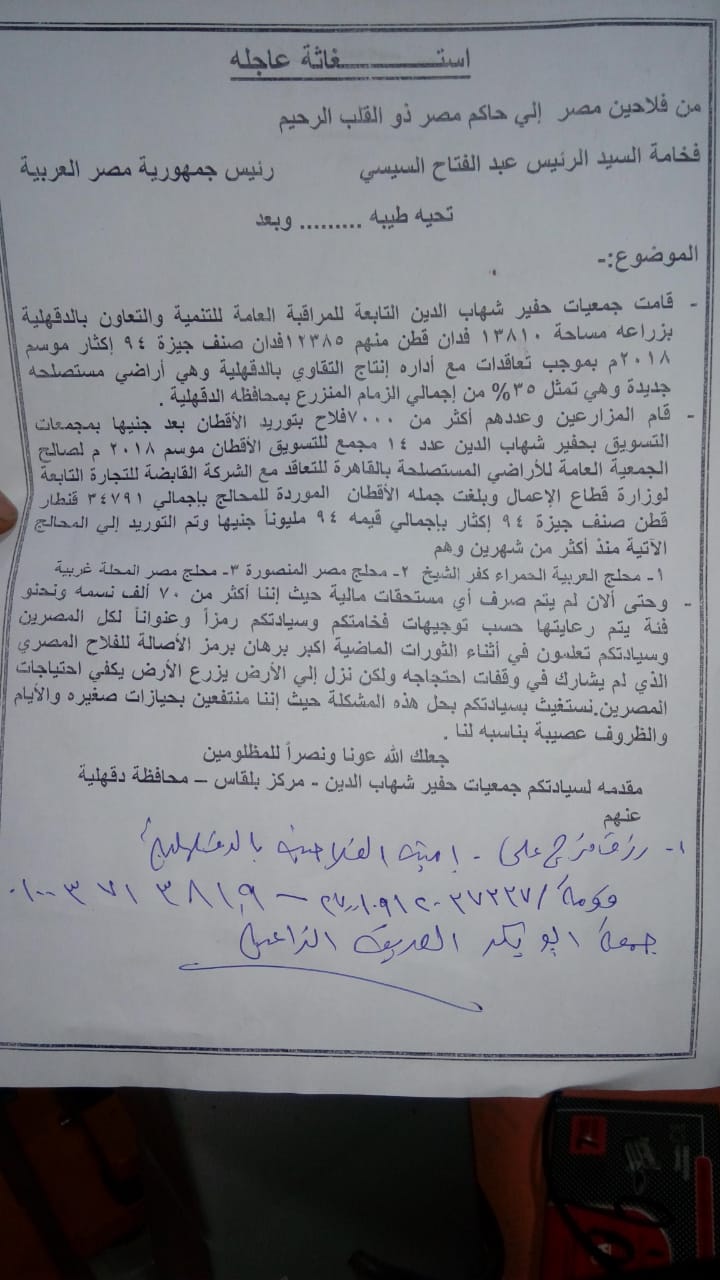 استـــــــــغاثة عاجله
من فلاحين مصر إلي حاكم مصر ذو القلب الرحيم
فخامة السيد الرئيس عبد الفتاح السيسي رئيس جمهورية مصر العربية
تحيه طيبه ......... وبعد
الموضوع:-
- قامت جمعيات حفير شهاب الدين التابعة للمراقبة العامة للتنمية والتعاون بالدقهلية
بزراعه مساحة ١٣٨١٠ فدان قطن منهم ١٢٣٨٥فدان صنف جيزة ٩٤ إكثار موسم
٢٠١٨م بموجب تعاقدات مع أداره إنتاج التقاوي بالدقهلية وهي أراضي مستصلحه
جديدة وهي تمثل ٣٥% من إجمالي الزمام المنزرع بمحافظه الدقهلية .
- قام المزارعين وعددهم أكثر من ٧٠٠٠فلاح بتوريد الأقطان بعد جنيها بمجمعات
التسويق بحفير شهاب الدين عدد ١٤ مجمع للتسويق الأقطان موسم ٢٠١٨ م لصالح
الجمعية العامة للأراضي المستصلحة بالقاهرة للتعاقد مع الشركة القابضة للتجارة التابعة
لوزارة قطاع الإعمال وبلغت جمله الأقطان الموردة للمحالج بإجمالي ٣٤٧٩١ قنطار
قطن صنف جيزة ٩٤ إكثار بإجمالي قيمه ٩٤ مليوناً جنيها وتم التوريد إلي المحالج
الآتية منذ أكثر من شهرين وهم
١- محلج العربية الحمراء كفر الشيخ ٢- محلج مصر المنصورة ٣- محلج مصر المحلة غربية
- وحتى ألان لم يتم صرف أي مستحقات مالية حيث إننا أكثر من ٧٠ ألف نسمه ونحنو
فئة يتم رعايتها حسب توجيهات فخامتكم وسيادتكم رمزاً وعنواناً لكل المصرين
وسيادتكم تعلمون في أثناء الثورات الماضية اكبر برهان برمز الأصالة للفلاح المصري
الذي لم يشارك في وقفات احتجاجه ولكن نزل إلي الأرض يزرع الأرض يكفي احتياجات
المصرين.نستغيث بسيادتكم بحل هذه المشكلة حيث إننا منتفعين بحيازات صغيره والأيام
والظروف عصيبة بناسبه لنا .
جعلك الله عونا ونصراً للمظلومين
مقدمه لسيادتكم جمعيات حفير شهاب الدين - مركز بلقاس – محافظة دقهلية
عنهم
١- رزق فرج على - امين الفلاحين بالدقهلية
جمعة ابو بكر الصديق الزراعية